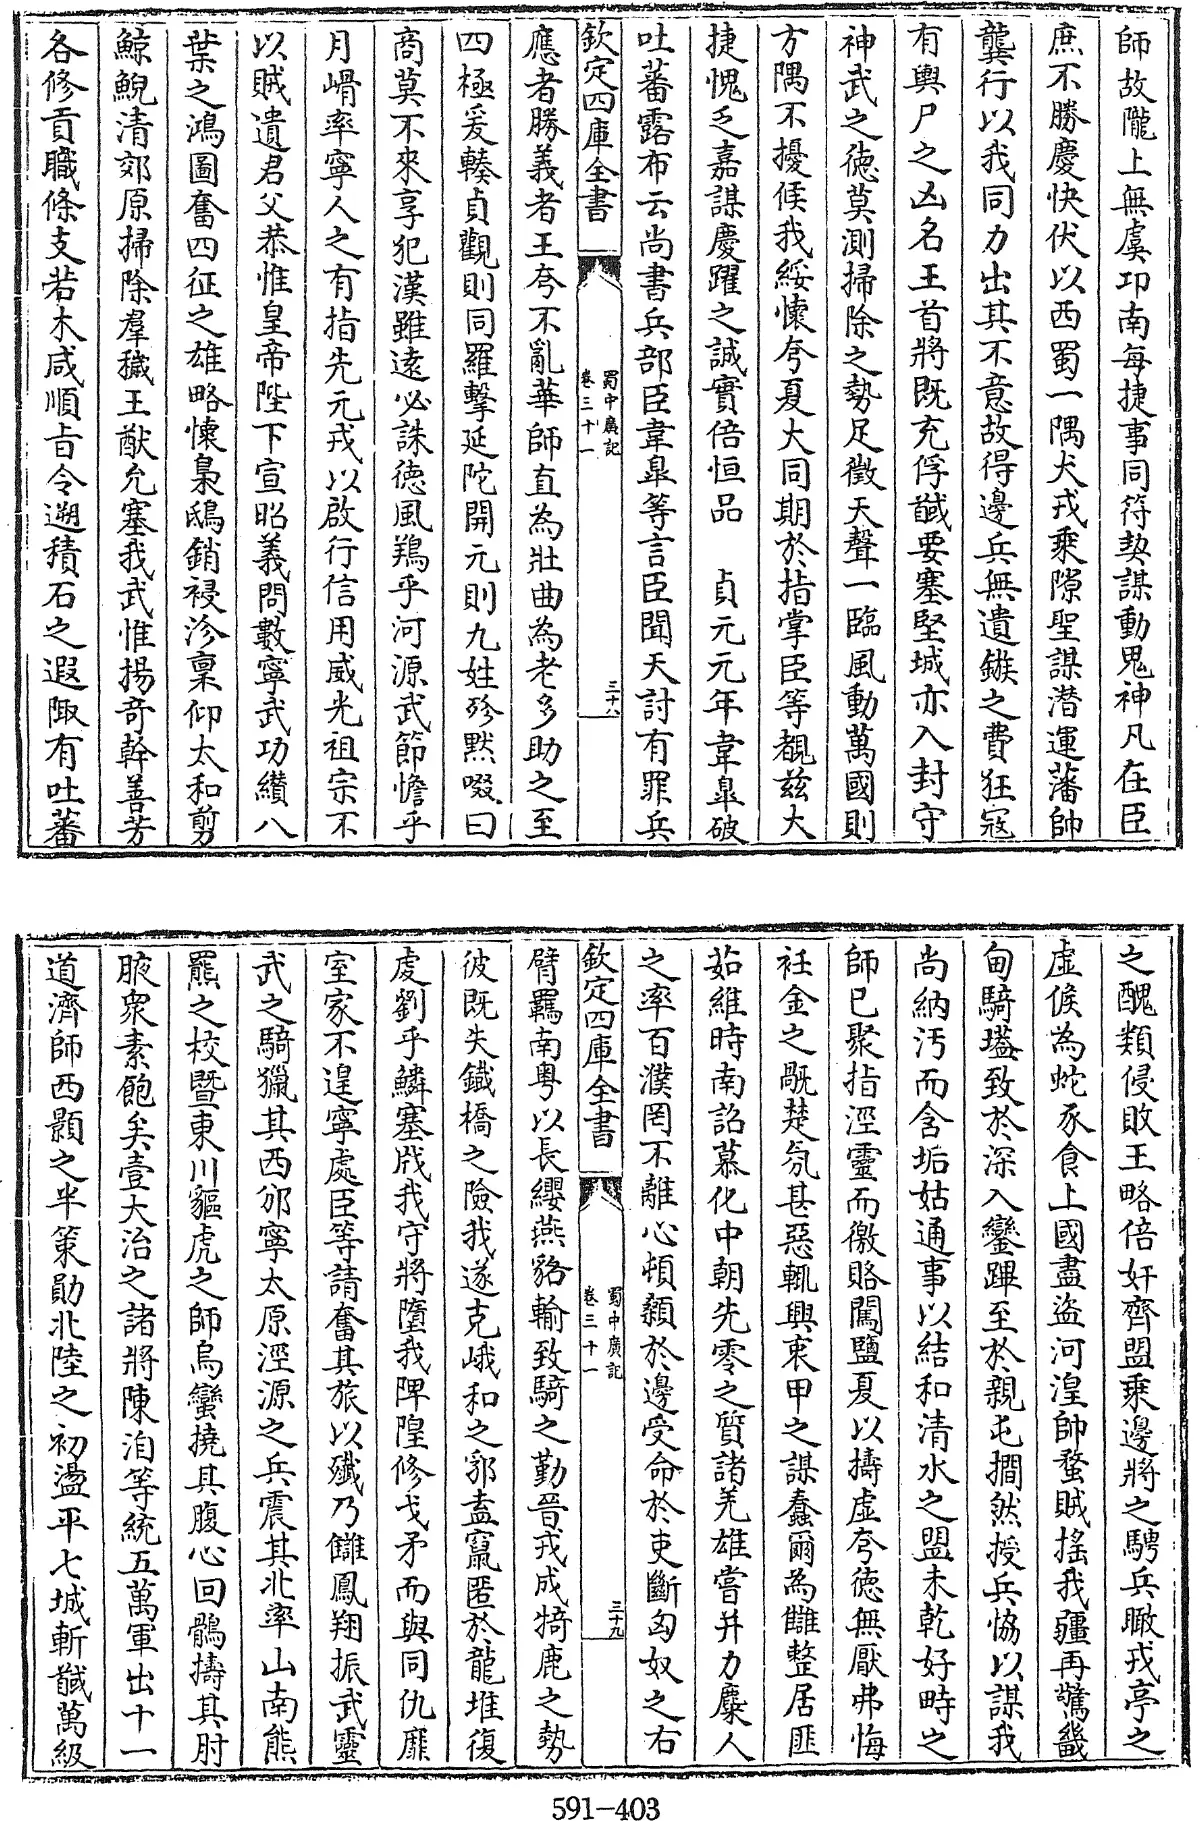 師故隴上無虞卭南每捷事同符契謀動鬼神凡在臣
庶不勝慶快伏以西蜀一隅犬戎乘隙聖謀潜運藩帥
龔行以我同力出其不意故得邊兵無遺鏃之費狂寇
有輿尸之凶名王首將既充俘馘要塞堅城亦入封守
神武之徳莫測掃除之勢足徵天聲一臨風動萬國則
方隅不擾候我綏懷夸夏大同期於指掌臣等覩兹大
捷愧乏嘉謀慶躍之誠實倍恒品　貞元元年韋臯破
吐蕃露布云尚書兵部臣韋臯等言臣聞天討有罪兵
欽定四庫全書
蜀中廣記
卷三十一
三十八
應者勝義者王夸不亂華師直為壯曲為老多助之至
四極爰轃貞觀則同羅擊延陀開元則九姓殄黙啜曰
商莫不來享犯漢雖遠必誅徳風鶁乎河源武節憺乎
月𡺾率寧人之有指先元戎以啟行信用威光祖宗不
以賊遺君父恭惟皇帝陛下宣昭義問敷寧武功纘八
葉之鴻圖奮四征之雄略懷梟鴟銷祲沴稟仰太和剪
鯨鯢清郊原掃除羣穢王猷允塞我武惟揚奇幹善芳
各修貢職條支若木咸順㫖令遡積石之遐陬有吐蕃
之醜類侵敗王略倍奸齊盟乘邊將之騁兵瞰戎亭之
虚候為蛇豕食上國盡盜河湟帥蝥賊搖我疆再驚畿
甸騎㙪致於深入鑾蹕至於親屯撊然授兵恊以謀我
尚納汚而含垢姑通事以結和清水之盟未乾好畤之
師已聚指涇靈而徼賂闖鹽夏以擣虚夸徳無厭弗悔
衽金之戬楚氛甚惡輒興衷甲之謀蠢爾為讎整居匪
茹維時南詔慕化中朝先零之質諸羌雄嘗并力麋人
之率百濮罔不離心頓顙於邊受命於吏斷匈奴之右
欽定四庫全書
蜀中廣記
卷三十一
三十九
臂羈南粤以長纓燕貉輸致騎之勤晉戎成犄鹿之勢
彼既失鐵橋之險我遂克峨和之郛盍竄匿於龍堆復
虔劉乎鱗塞戕我守將墮我陴隍修戈矛而與同仇靡
室家不遑寧處臣等請奮其旅以殱乃讎鳳翔振武靈
武之騎獵其西邠寧太原涇源之兵震其北率山南熊
羆之校暨東川貙虎之師烏蠻撓其腹心回鶻擣其肘
腋衆素飽矣壹大治之諸將陳洎等統五萬軍出十一
道濟師西顥之半策勛北陸之初盪平七城斬馘萬級
591-403